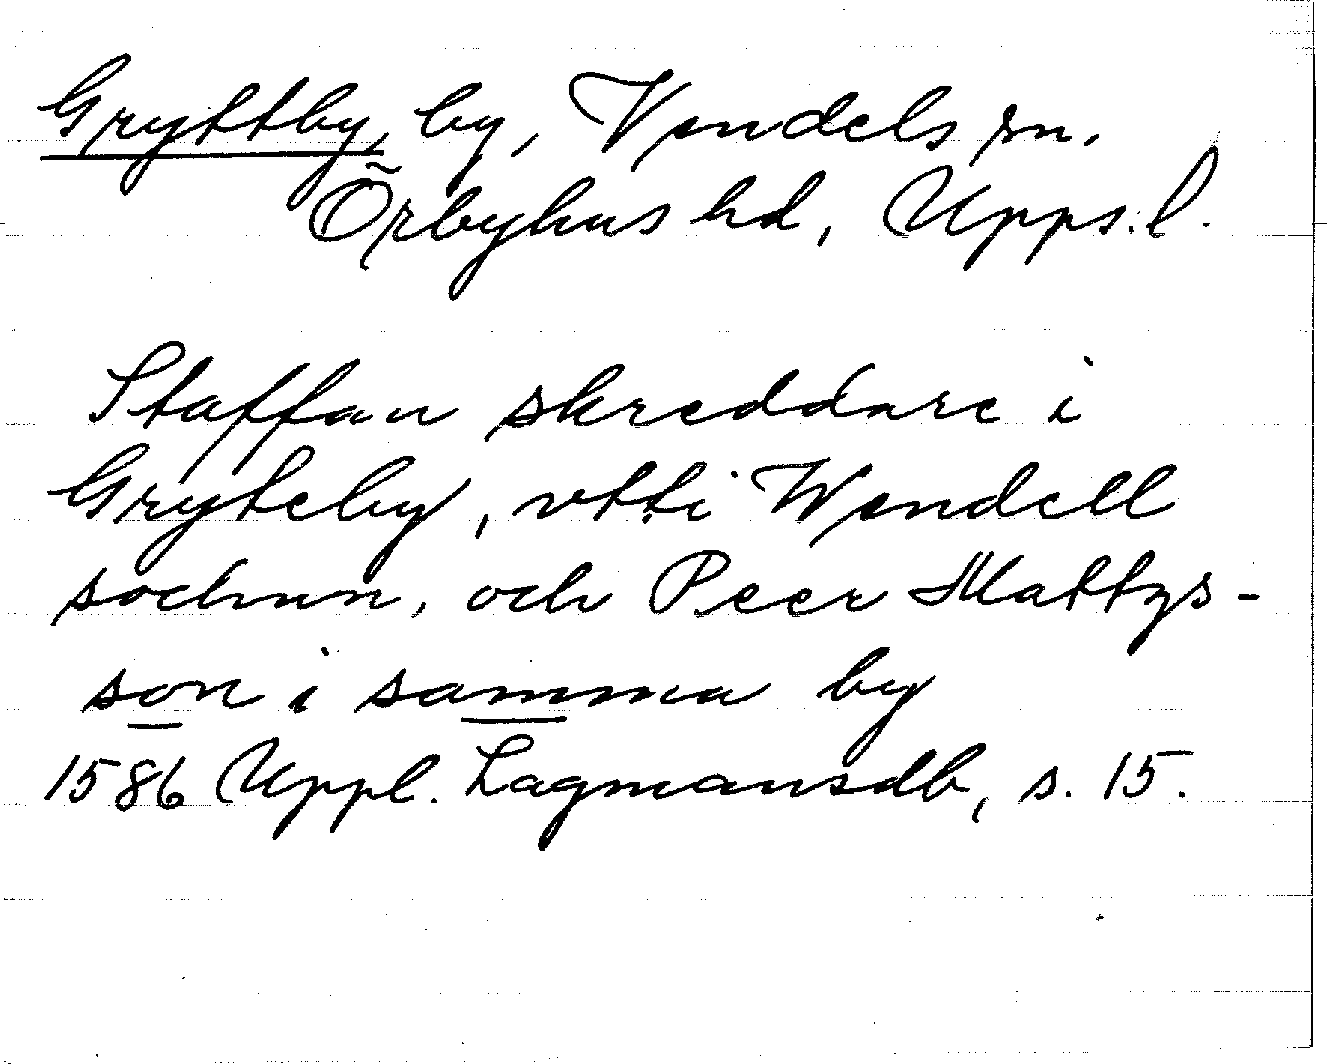 Gryttby, by, Vendels sn.
Örbyhus hd, Upps. l.
Staffan skreddare i
Gryteby, vtti Wendell
sochnn, och Peer Mattzs-
son i samma by
1586 Uppl. Lagmansdb, s. 15.